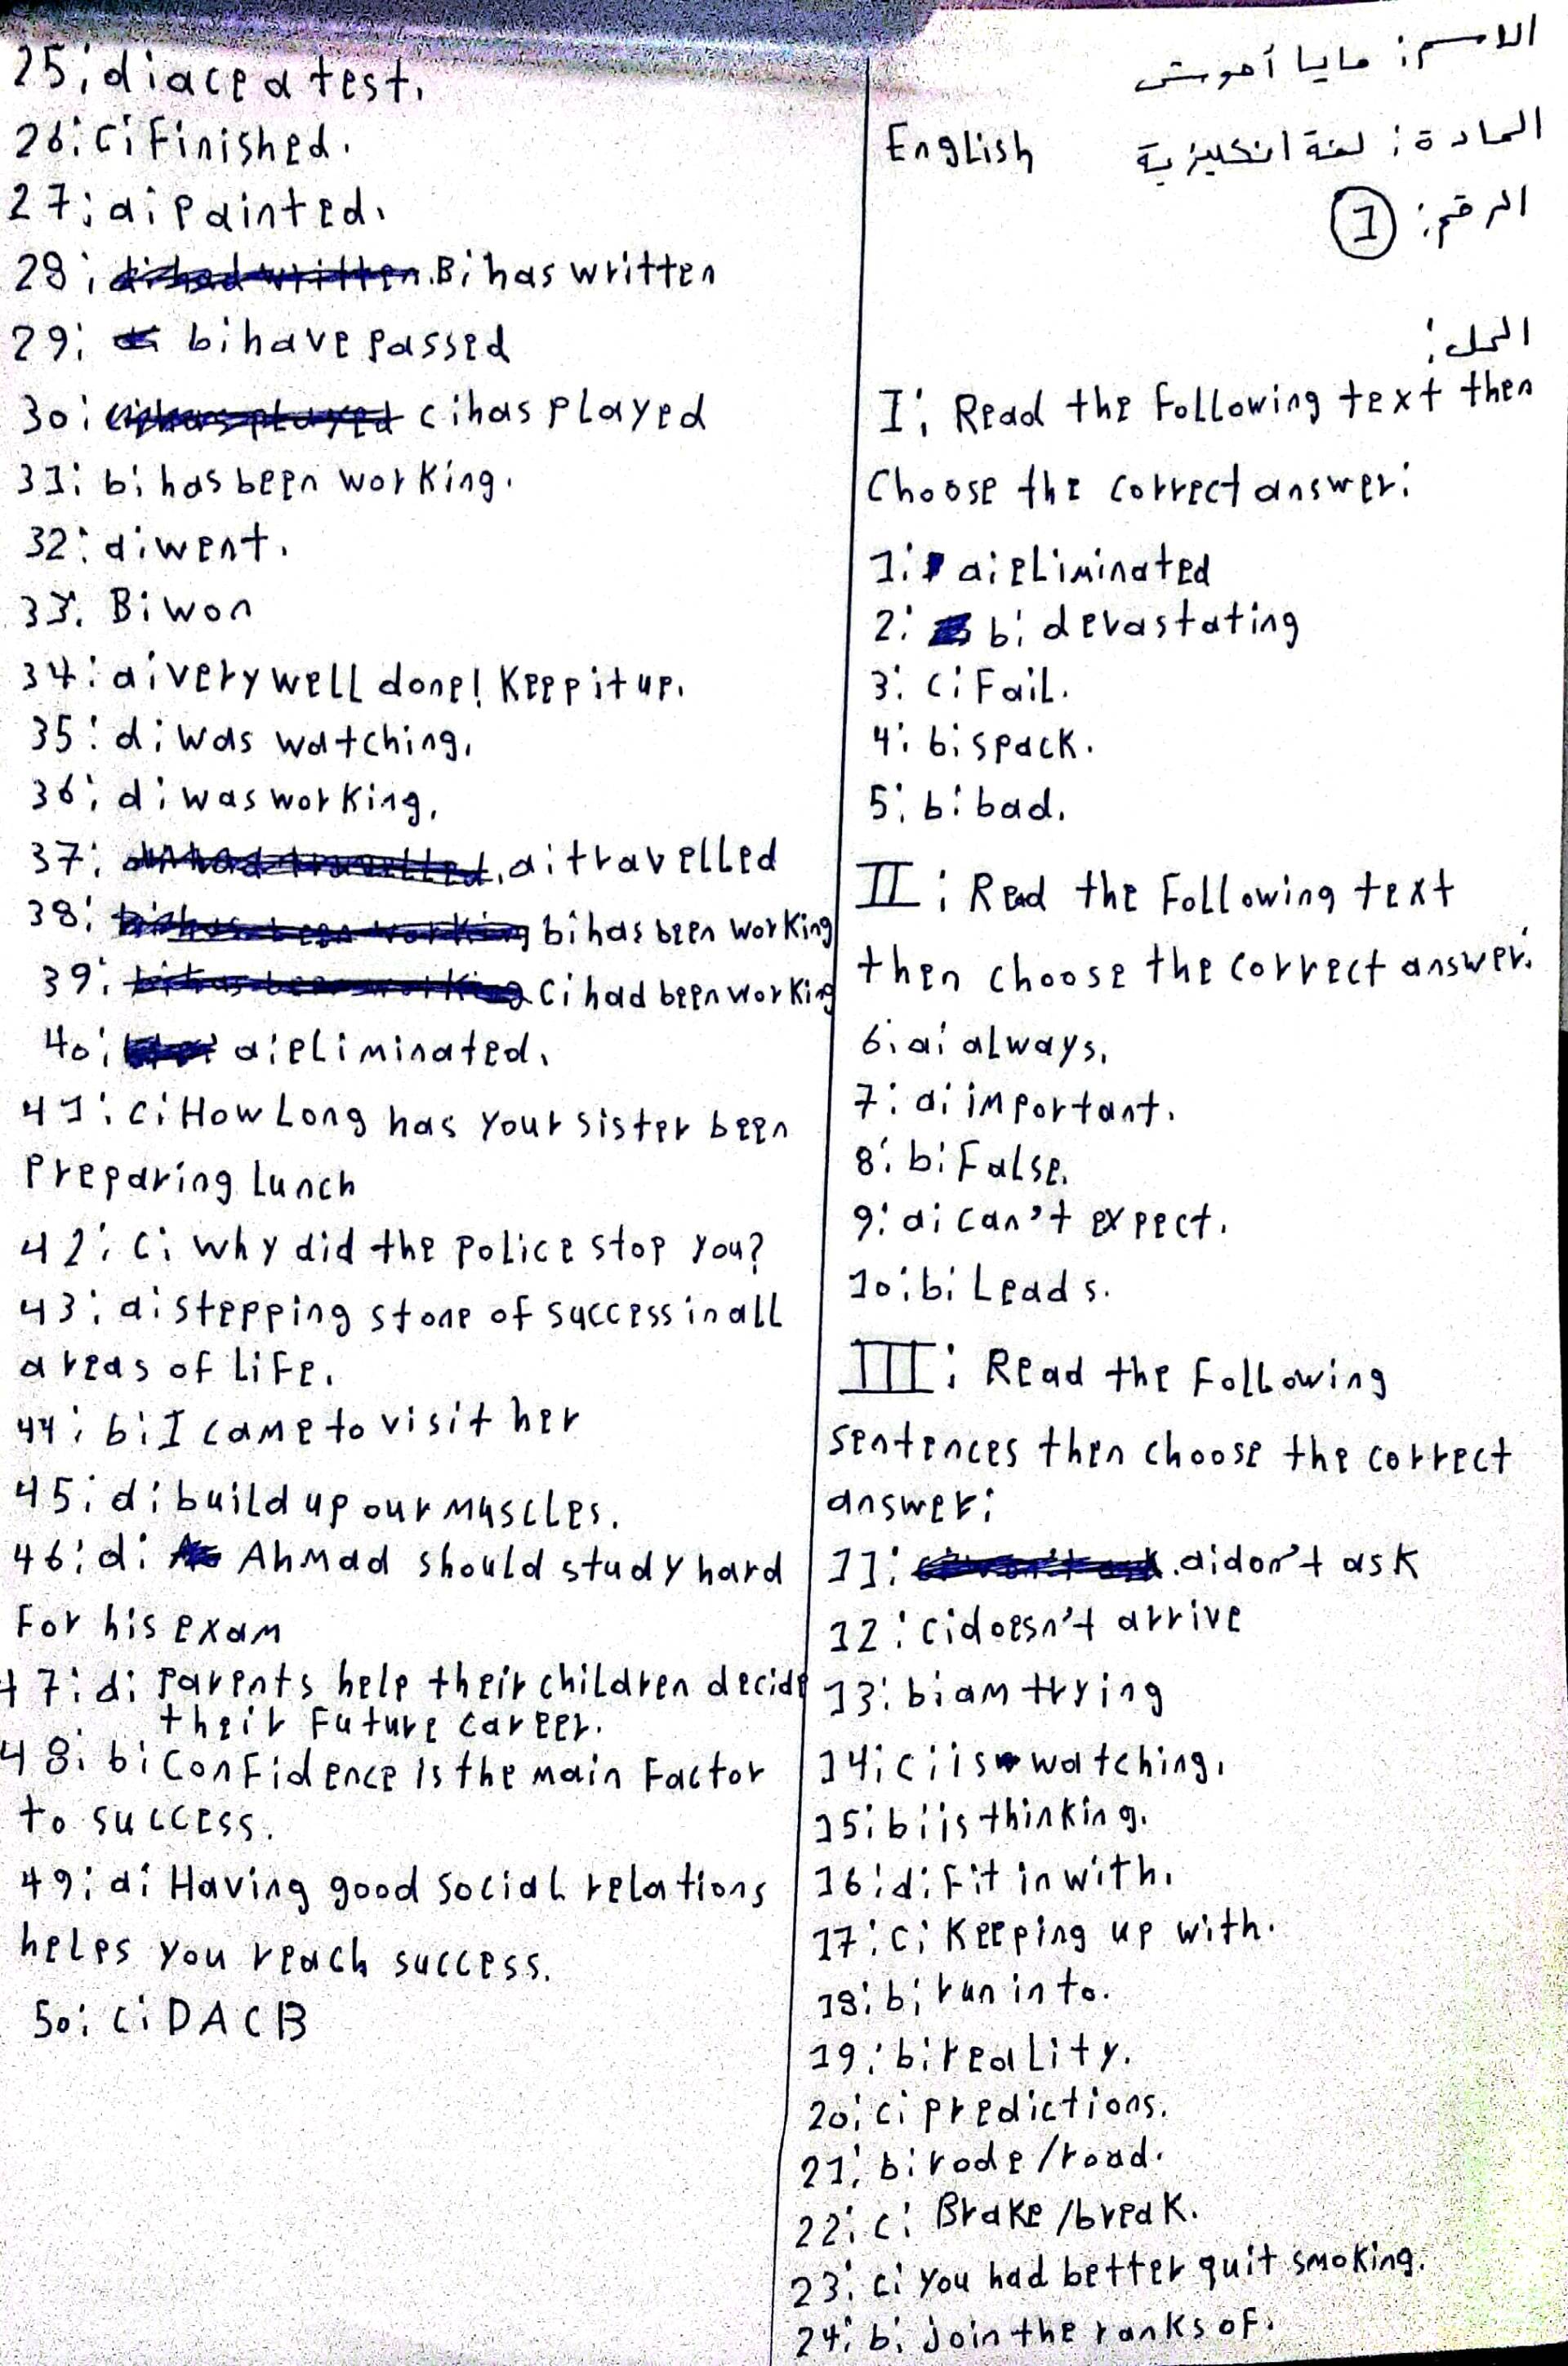 الاسم: مايا آموش
المادة: لغة انكليزية English
الرقم: 1
الحل:
I: Read the following text then
Choose the correct answer:
1: a: eliminated
2: b: devastating
3: c: Fail.
4: b: spack.
5: b: bad.
II: Read the Following text
then choose the correct answer:
6: a: always.
7: a: important.
8: b: False.
9: a: can't expect.
10: b: Leads.
III: Read the Following
sentences then choose the correct
answer:
11: a: don't ask
12: c: doesn't arrive
13: b: am trying
14: c: is watching.
15: b: is thinking.
16: d: fit in with.
17: c: Keeping up with.
18: b: run into.
19: b: reality.
20: c: predictions.
21: b: rode/road.
22: c: Brake/break.
23: c: you had better quit smoking.
24: b: join the ranks of.
25: d: aced a test.
26: c: Finished.
27: a: painted.
28: B: has written
29: b: have passed
30: c: has played
31: b: has been working.
32: d: went.
33: B: won
34: a: very well done! Keep it up.
35: d: was watching.
36: d: was working.
37: a: travelled
38: b: has been working
39: c: had been working
40: a: eliminated.
41: c: How Long has your sister been
preparing Lunch
42: c: why did the police stop you?
43: a: stepping stone of success in all
areas of life.
44: b: I came to visit her
45: d: build up our muscles.
46: d: Ahmad should study hard
For his exam
47: d: parents help their children decide
their future career.
48: b: Confidence is the main Factor
to success.
49: a: Having good social relations
helps you reach success.
50: c: DACB